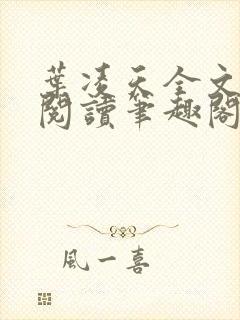 葉凌天全文
閱讀筆趣閣
風一喜